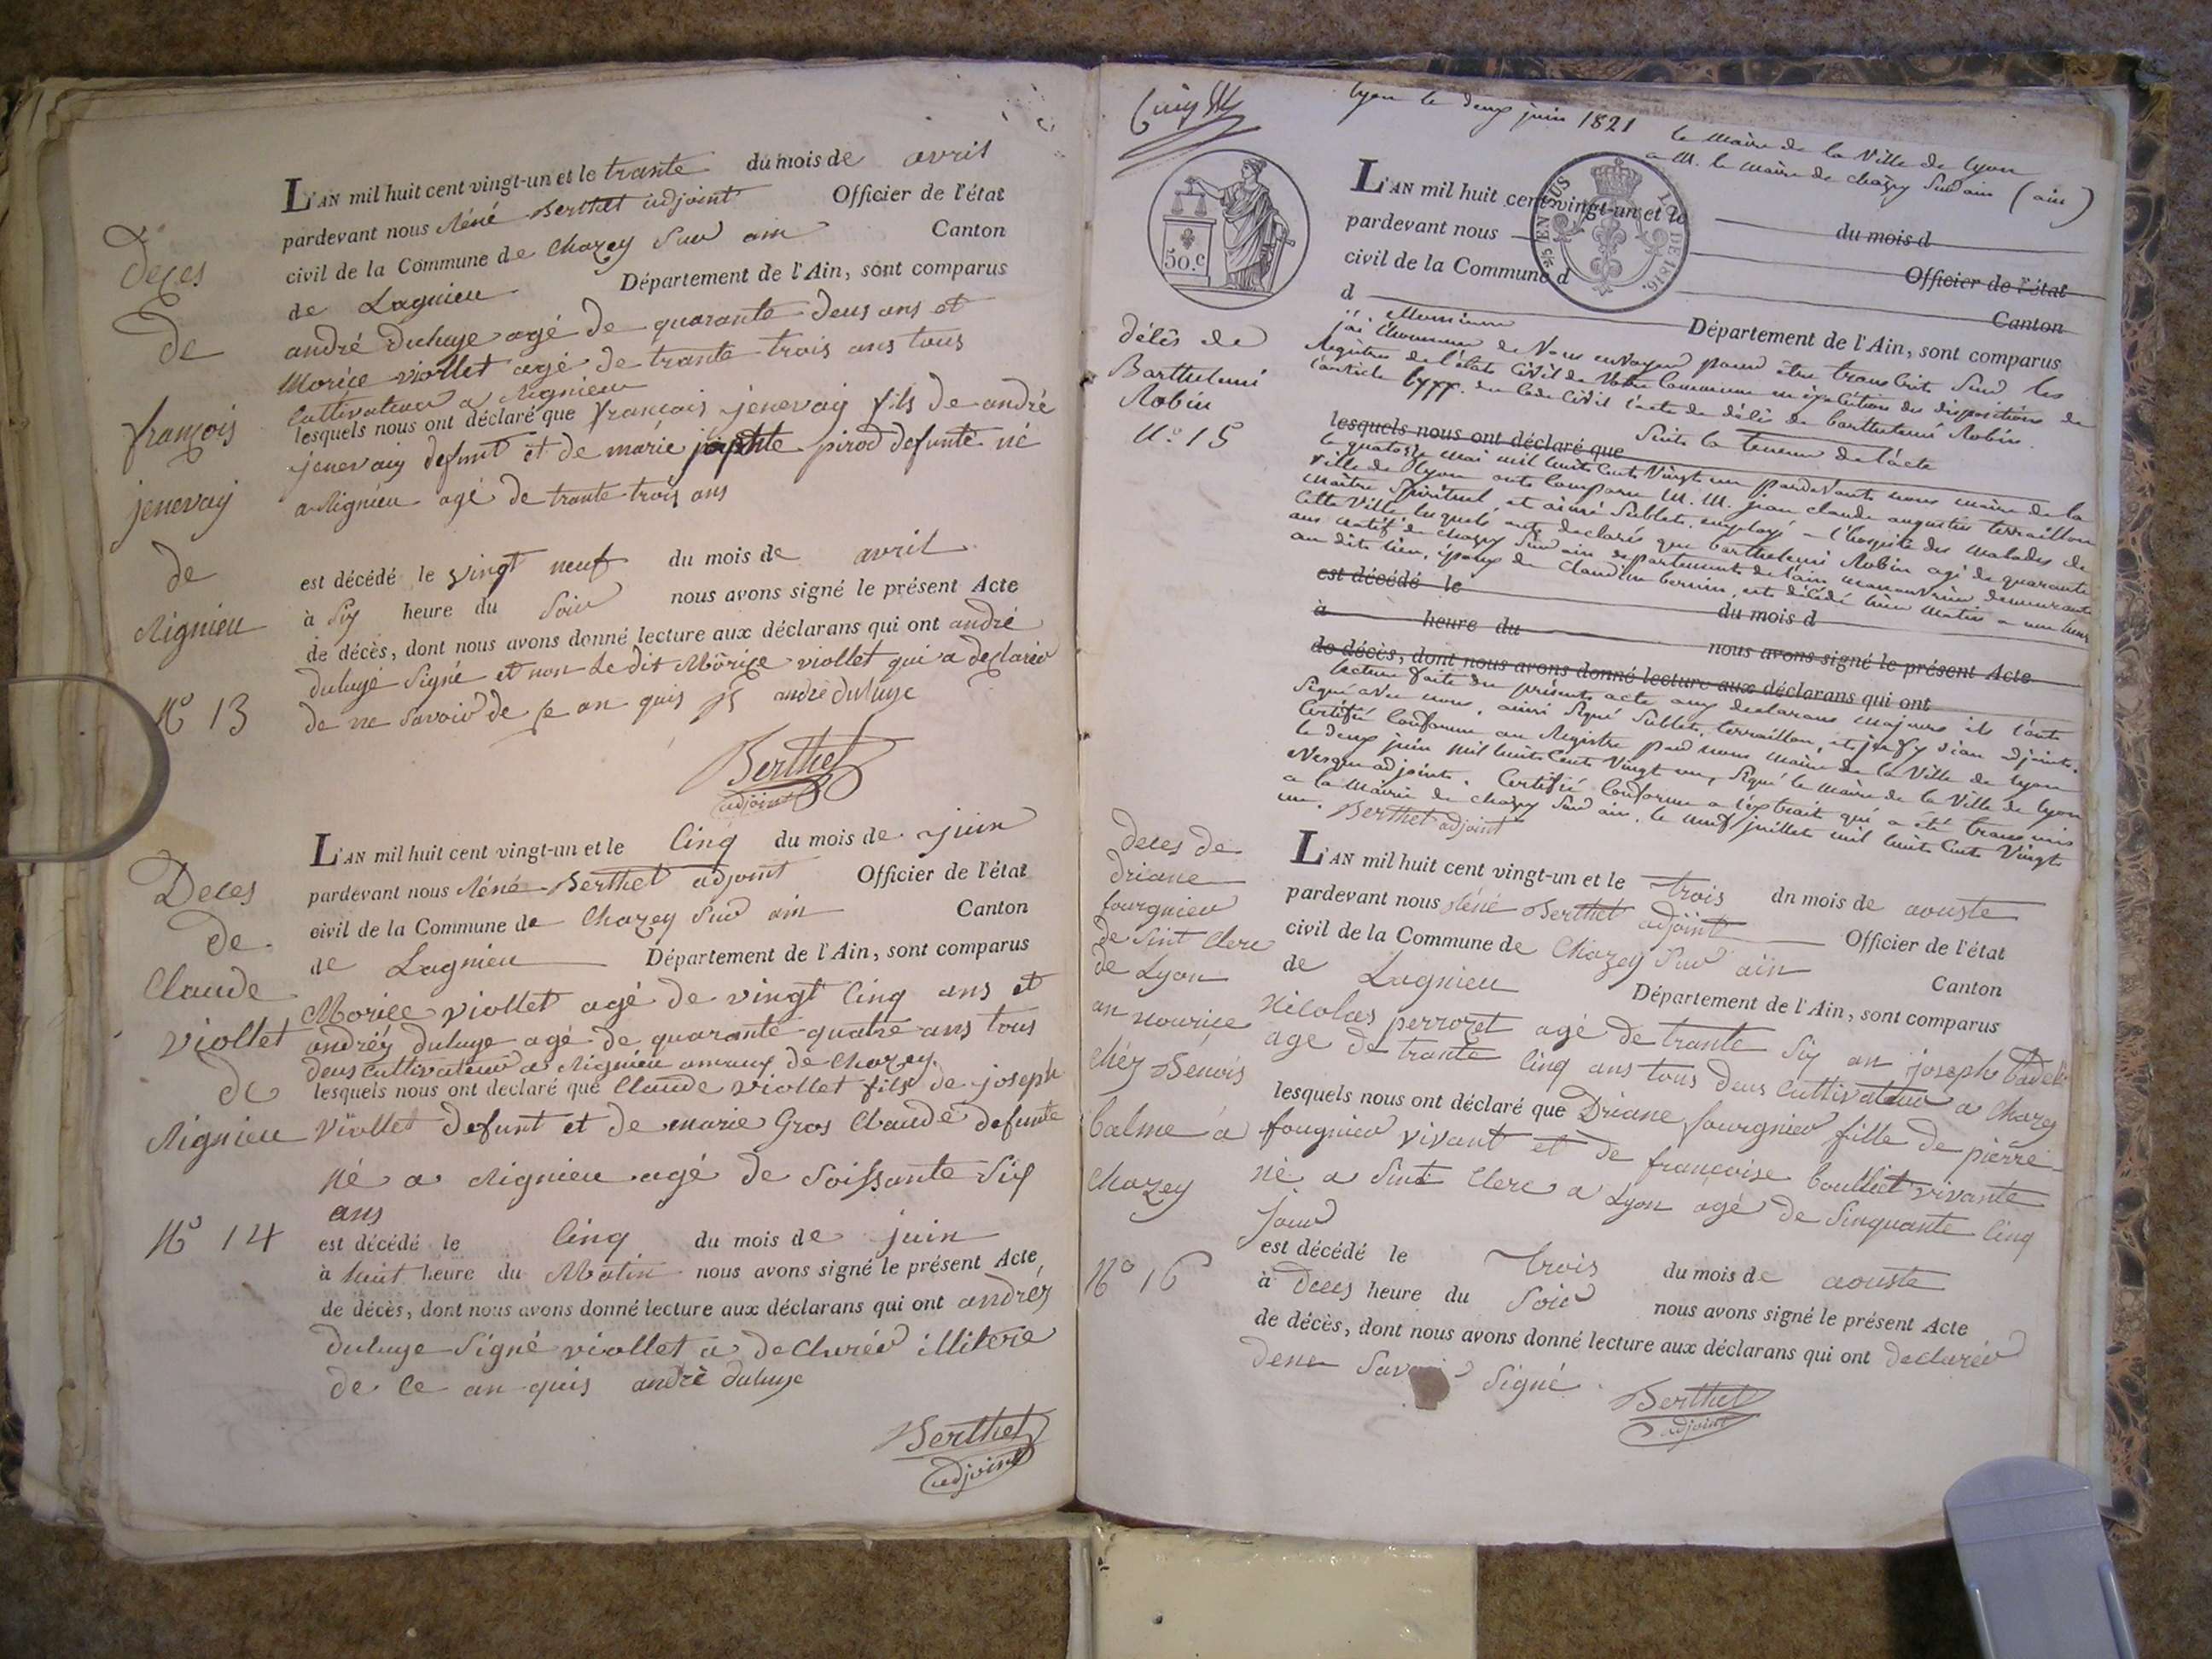 Deces
De
françois
jenevay
de
Rignieu
N.o 13
L'AN mil huit cent vingt-un et le trante du mois de avril
pardevant nous Réné Berthet adjoint Officier de l'état
civil de la Commune de Chazey Sur ain Canton
de Lagnieu Département de l'Ain, sont comparus
andré Duluye agé de quarante Deus ans et
Morice viollet agé de trante trois ans tous
Cultivateur a Rignieu
lesquels nous ont déclaré que françois jenevay fils de andré
jenevay defunt et de marie pirod defunte né
a Rignieu agé de trante trois ans
est décédé le vingt neuf du mois de avril
à Six heure du Soir nous avons signé le présent Acte
de décès, dont nous avons donné lecture aux déclarans qui ont andré
duluye Signé et non Le dit Morice viollet qui a declarer
de ne Savoir de ce an quis andré duluye
Berthet
adjoint
Deces
De
Claude
viollet
de
Rignieu
N.o 14
L'AN mil huit cent vingt-un et le Cinq du mois de juin
pardevant nous Réné Berthet adjoint Officier de l'état
civil de la Commune de Chazey Sur ain Canton
de Lagnieu Département de l'Ain, sont comparus
Morice viollet agé de vingt Cinq ans et
andréy duluye agé de quarante quatre ans tous
deus Cultivateur a Rignieu de Chazey
lesquels nous ont declaré que Claude viollet fils de joseph
viollet defunt et de marie Gros Claude defunte
né a Rignieu agé de Soissante Six
ans
est décédé le Cinq du mois de juin
à huit heure du Matin nous avons signé le présent Acte
de décès, dont nous avons donné lecture aux déclarans qui ont andréy
duluye Signé viollet a declarér illitere
de Ce an quis andré duluye
Berthet
adjoint
Lyon le deux juin 1821
le Maire de la Ville de Lyon
a M. le maire de chazey Sur ain (ain)
50.c
EN SUS
LOI DE 1816.
L'AN mil huit cent vingt-un et le du mois d
pardevant nous Officier de l'état
civil de la Commune d Canton
d Département de l'Ain, sont comparus
délès de
Barthelemi
Robin
N.o 15
Monsieur
j'ai l'honneur de Vous envoyer pour être transcrit Sur les
Registres de l'état Civil de Votre Commune en éxécution des dispositions de
l'article du Code Civil l'acte de délès de barthelemi Robin.
Suit la teneur de l'acte
lesquels nous ont déclaré que
le quatorze mai mil huit Cent Vingt un pardevant nous maire de la
Ville de Lyon ont Comparu M. M. jean claude augustin terraillon
maitre Spirituel, et aimé Sublet, employé a l'hospice des malades de
Cette Ville lesquels ont declaré que barthelemi Robin agé de quarante
ans natif de chazey Sur ain departement de l'ain manouvrier demeurant
au dit lieu, époux de Claudine bernin, est décédé hier matin a une heure
est décédé le du mois d
à heure du nous avons signé le présent Acte
de décès, dont nous avons donné lecture aux déclarans qui ont
lecture faite du présent acte aux declarans majeurs ils l'ont
Signé avec nous, ainsi Signé Sublet, terraillon, et adjoint.
Certifié Conforme au Registre par nous maire de la Ville de Lyon
le deux juin mil huit Cent Vingt un, Signé le maire de la Ville de Lyon
adjoint. Certifié Conforme a l'éxtrait qui a été transmis
a la mairie de chazey Sur ain, le neuf juillet mil huit Cent Vingt
un. Berthet adjoint
deces de
driane
fourgnier
de Sint Clere
de Lyon
an nouriçe
chéz Benois
balme a
Chazey
N.o 16
L'AN mil huit cent vingt-un et le trois dn mois de aouste
pardevant nous Réné Berthet adjoint Officier de l'état
civil de la Commune de Chazey Sur ain Canton
de Lagnieu Département de l'Ain, sont comparus
nicolas perrozet agé de trante Six an joseph
age de trante Cinq ans tous deus Cultivateur a Chazey
lesquels nous ont déclaré que Driane fourgnier fille de pierre
fougnier vivant et de françoise vivante
né a Sint Clere a Lyon agé de Sinquante Cinq
jour
est décédé le trois du mois de aouste
à Deus heure du Soir nous avons signé le présent Acte
de décès, dont nous avons donné lecture aux déclarans qui ont declarér
dene Signé.
Berthet
adjoint